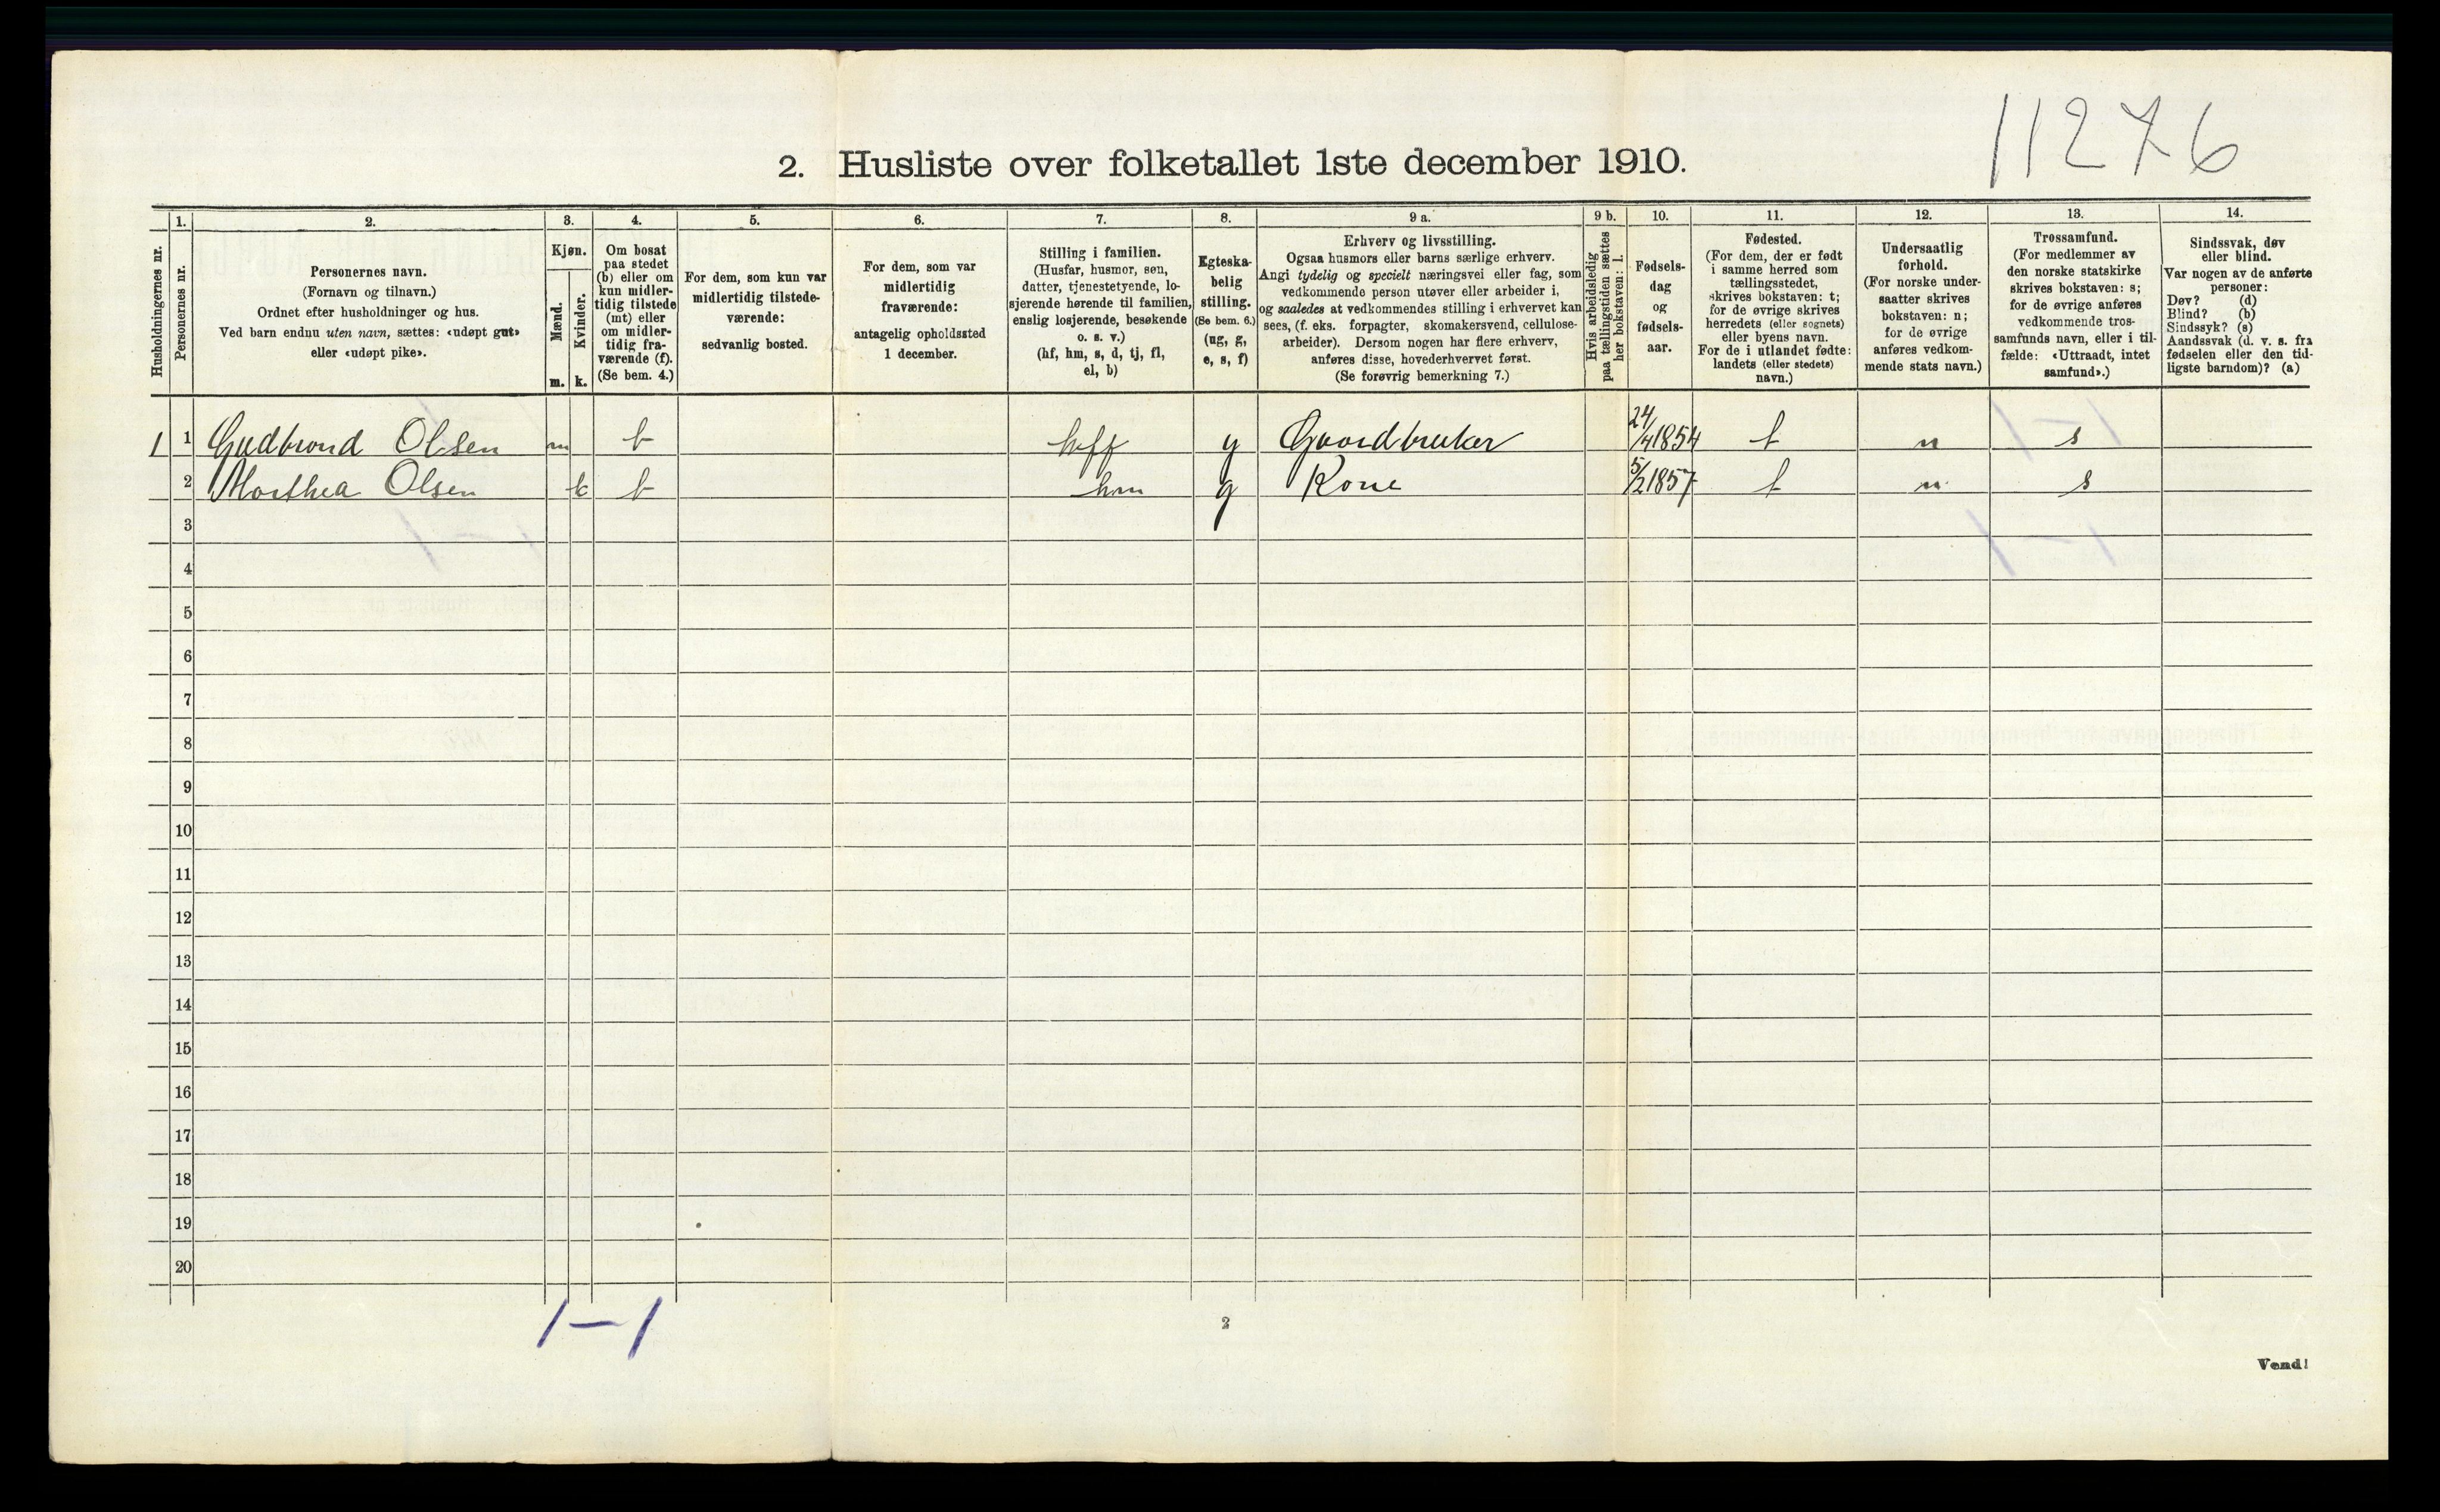 11276
2. Husliste over folketallet 1ste december 1910.
1. 2. 3. 4. 5. 6. 7. 8. 9 a. 9 b. 10. 11. 12. 13. 14.
Husholdningernes nr.
Personernes nr.
Personernes navn.
(Fornavn og tilnavn.)
Ordnet efter husholdninger og hus.
Ved barn endnu uten navn, sættes: «udøpt gut»
eller «udøpt pike».
Kjøn.
Mænd.
Kvinder.
m. k.
Om bosat
paa stedet
(b) eller om
kun midler-
tidig tilstede
(mt) eller
om midler-
tidig fra-
værende (f).
(Se bem. 4.)
For dem, som kun var
midlertidig tilstede-
værende:
sedvanlig bosted.
For dem, som var
midlertidig
fraværende:
antagelig opholdssted
1 december.
Stilling i familien.
(Husfar, husmor, søn,
datter, tjenestetyende, lo-
sjerende hørende til familien,
enslig losjerende, besøkende
o. s. v.)
(hf, hm, s, d, tj, fl,
el, b)
Egteska-
belig
stilling.
(Se bem. 6.)
(ug, g,
e, s, f)
Erhverv og livsstilling.
Ogsaa husmors eller barns særlige erhverv.
Angi tydelig og specielt næringsvei eller fag, som
vedkommende person utøver eller arbeider i,
og saaledes at vedkommendes stilling i erhvervet kan
sees, (f. eks. forpagter, skomakersvend, cellulose-
arbeider). Dersom nogen har flere erhverv,
anføres disse, hovederhvervet først.
(Se forøvrig bemerkning 7.)
Hvis arbeidsledig
paa tællingstiden sættes
her bokstaven: l.
Fødsels-
dag
og
fødsels-
aar.
Fødested.
(For dem, der er født
i samme herred som
tællingsstedet,
skrives bokstaven: t;
for de øvrige skrives
herredets (eller sognets)
eller byens navn.
For de i utlandet fødte:
landets (eller stedets)
navn.)
Undersaatlig
forhold.
(For norske under-
saatter skrives
bokstaven: n;
for de øvrige
anføres vedkom-
mende stats navn.)
Trossamfund.
(For medlemmer av
den norske statskirke
skrives bokstaven: s;
for de øvrige anføres
vedkommende tros-
samfunds navn, eller i til-
fælde: «Uttraadt, intet
samfund».)
Sindssvak, døv
eller blind.
Var nogen av de anførte
personer:
Døv? (d)
Blind? (b)
Sindssyk? (s)
Aandssvak (d. v. s. fra
fødselen eller den tid-
ligste barndom)? (a)
1 1 Gudbrand Olsen m b hff g Gaardbruker 24/4 1854 t n s
2 Marthea Olsen k b hm g Kone 5/2 1857 t n s
3
4
5
6
7
8
9
10
11
12
13
14
15
16
17
18
19
20
1–1
2
Vend!